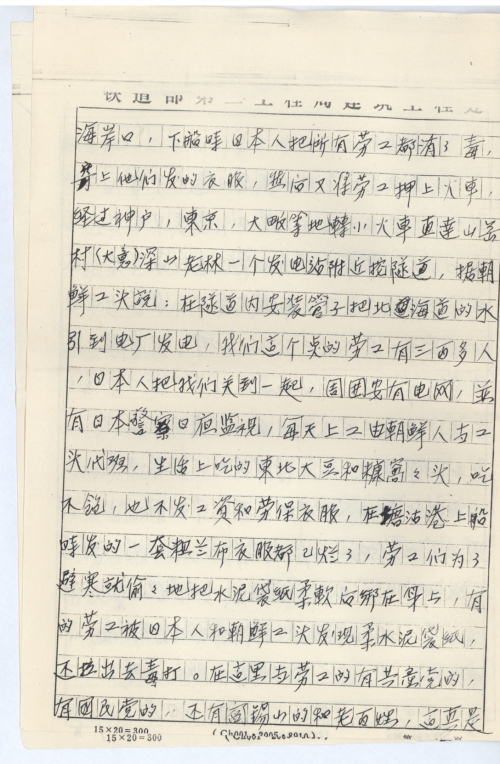 铁道部第二工程局建筑工程处
海岸口，下船哇日本人把所有劳工都消了毒，
穿上他们发的衣服，然向又将劳工押上火車，
经过神户，東京，大畈等地轉小火車直達山岳
村(大島)深山老林一个发电站附近挖隧道，据朝
鮮工头説：在隧道内安装管子把北海道的水
引到电厂发电，我们这个臭的劳工有三百多人
，日本人把我们关到一起，周围安有电网，並
有日本警察日夜监视，每天上工由朝鮮人与工
头代班，生治上吃的東北大豆和糠窩々头，吃
不饱，也不发工資和劳保衣服，在塘沽港上船
哇发的一套粗兰布衣服都已烂了，劳工们为了
避寒就偷々地把水泥袋纸柔軟向绑在身上，有
的劳工被日本人和朝鮮工头发现柔水泥袋纸，
还拉出去毒打。在这里与劳工的有共産党的，
有國民党的，还有阎锡山的和老百姓，這真是
15×20=300
15×20=300